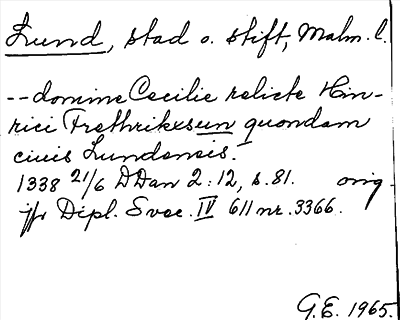 Lund, stad o. stift, Malm. l.
-- domine Cecilie relicte Hin-
rici Frethrikssun quondam
ciuis Lundensis.
1338 21/6 DDan 2:12, s. 81. orig.
jfr Dipl. Svec. IV 611 nr. 3366.
G.E. 1965.